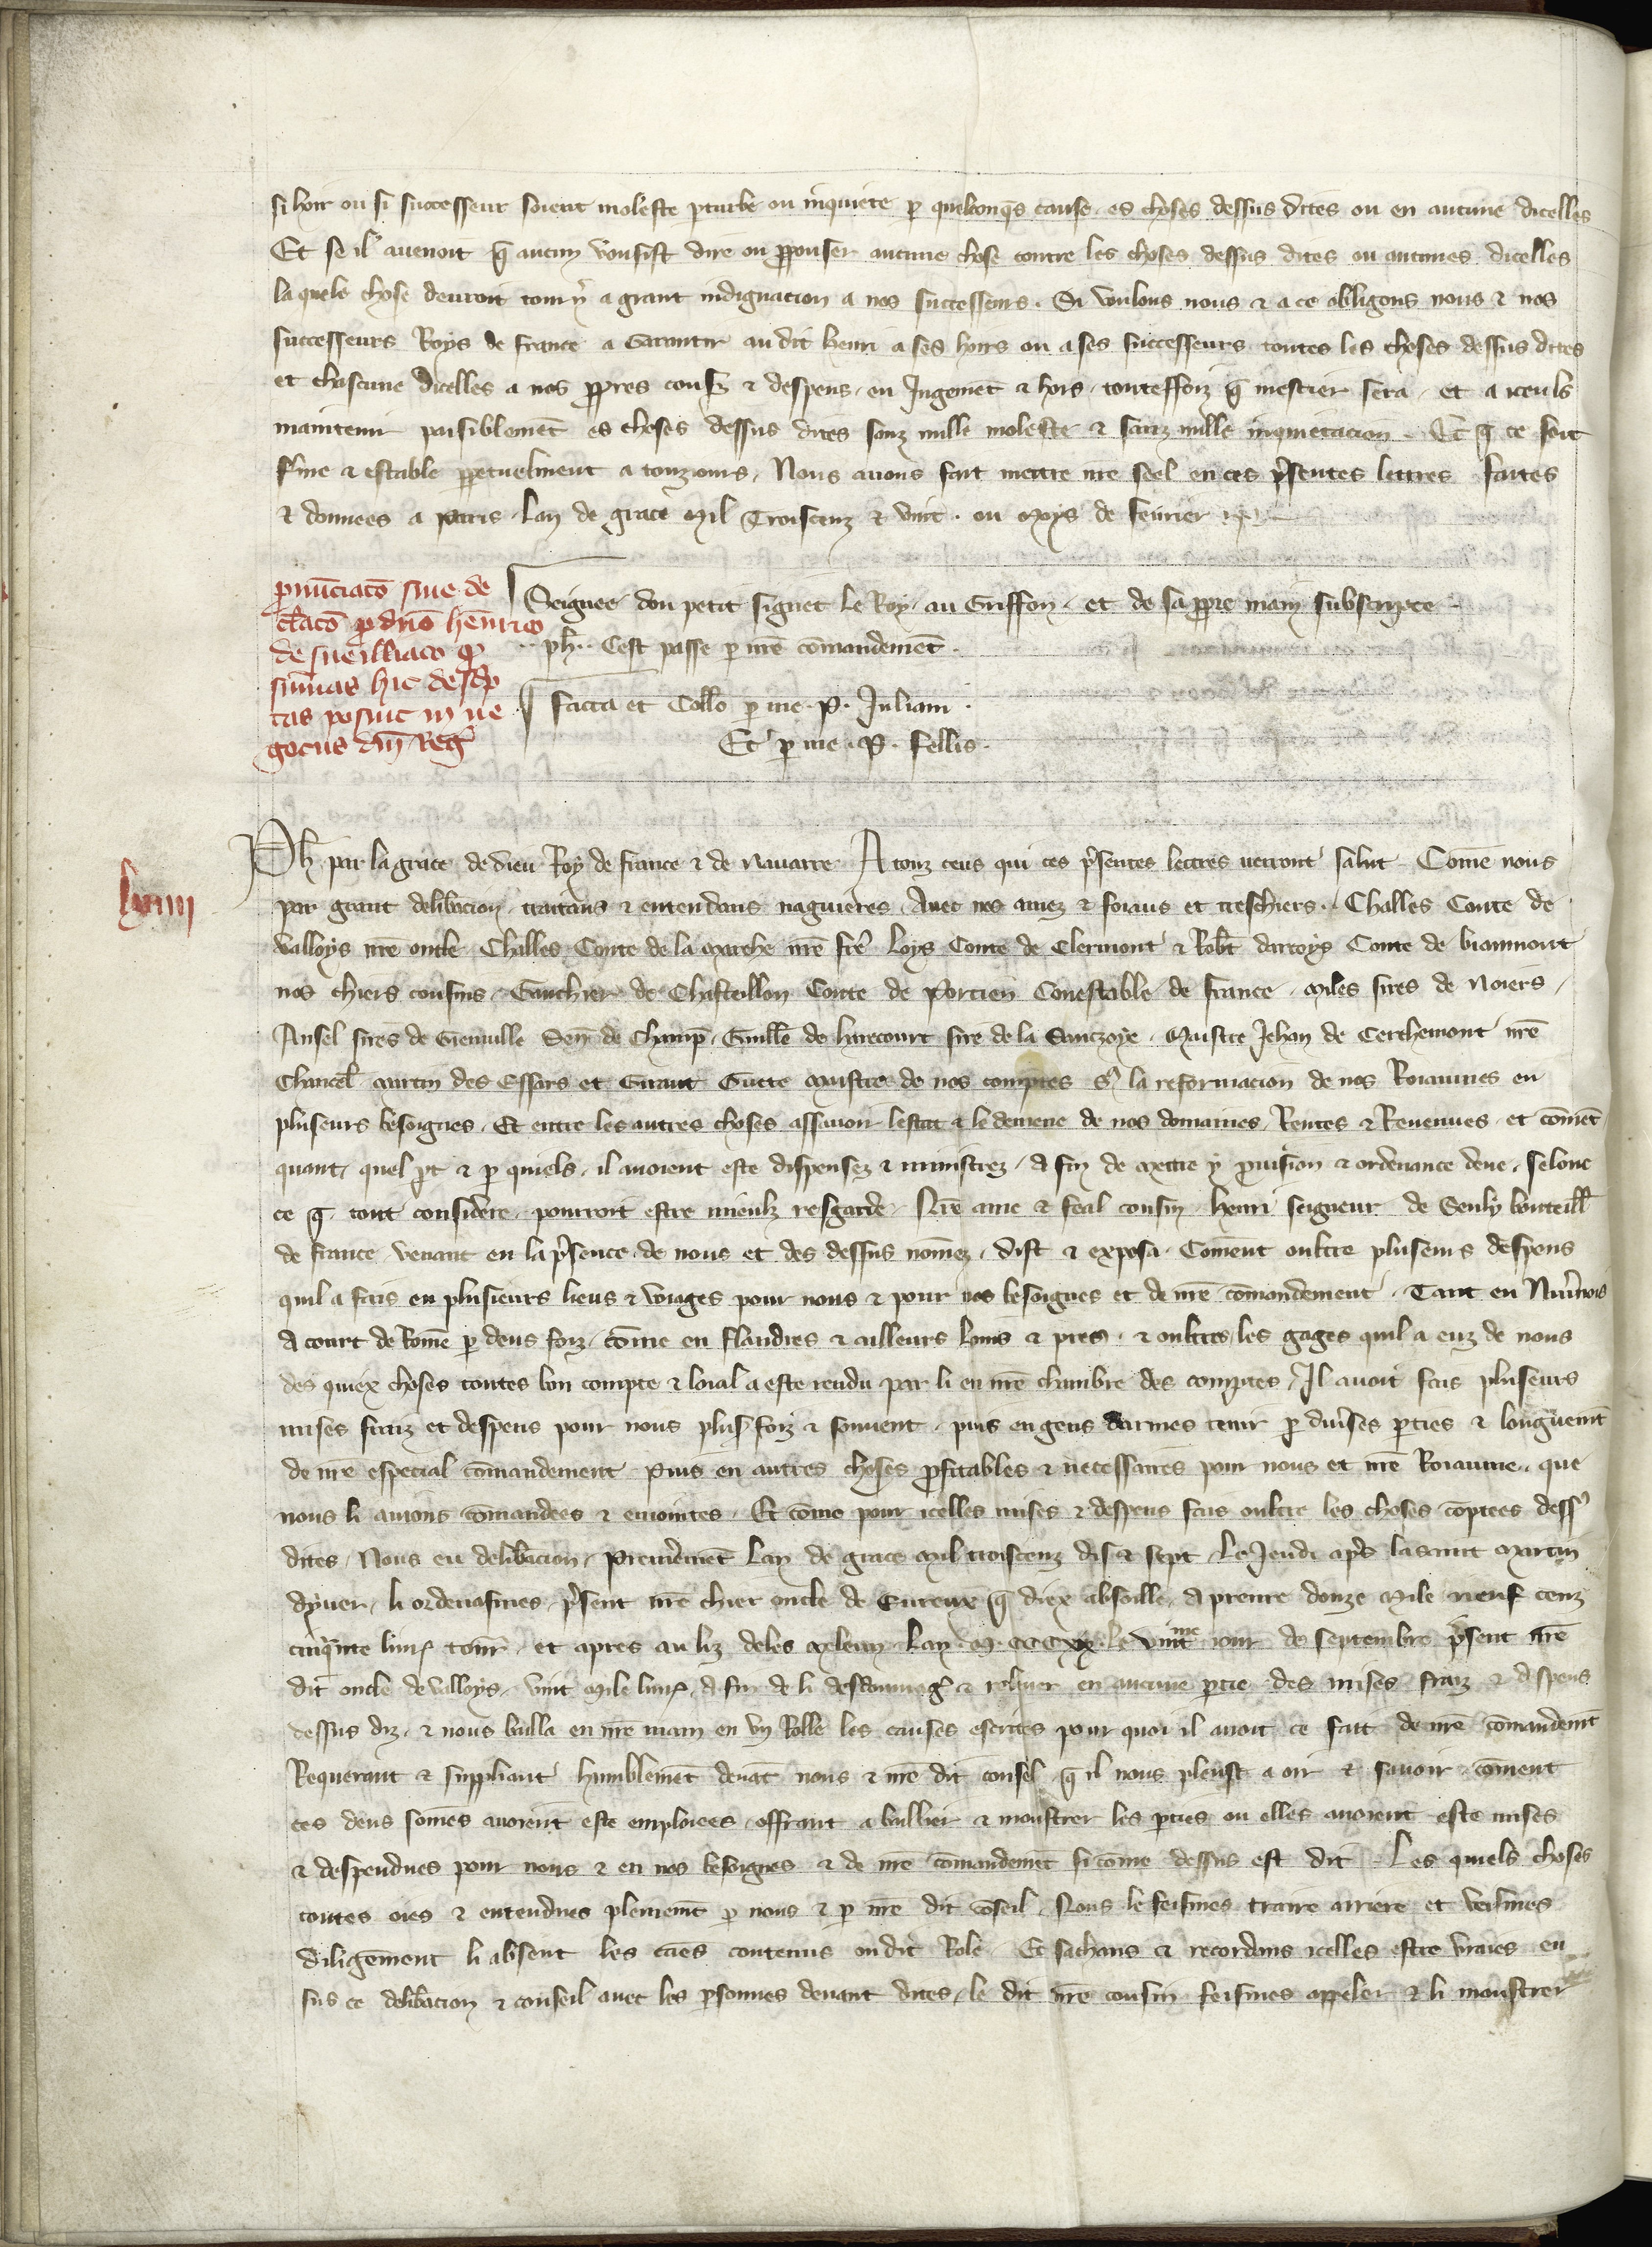 si hoir ou si successeur soient moleste pturbe ou inquiete p quelconqs cause es choses dessus dites ou en aucune dicelles
Et se il auenoit q̄ aucun vousist dire ou ꝓposer aucune chose contre les choses dessus dites ou aucunes dicelles
la quele chose deuroit torn̄ a grant indignacion a nos successeurs. Si voulons nous & a ce obligons nous & nos
successeurs Roys de france a Garantir au dit henri a ses hoirs ou a ses successeurs toutes les choses dessus dites
et chascune dicelles a nos ꝓpres cousz & despens en Jugemēt & hors toutesfoiz q̄ mestier sera et a iceuls
maintenir paisiblemēt es choses dessus dites sanz nulle moleste & sanz nulle inquietacion. Et q̄ ce soit
f'me & estable ꝑpetuelment a touz iours, Nous auons fait mettre nr̄e seel en ces p̄sentes lettres faites
& donnees a Paris Lan de grace Mil Troiscenz & vint. ou Moys de feurier
Seignee dou petit signet le Roy au Griffon et de sa ꝓpre main subscripte
ph̄. Cest passe p nr̄e cōmandemēt.
facta est Coll̄o p me P. Juliani.
Et p me P. Fellis.
ꝓnūciatō siue de
cl̄acō p dn̄o henrico
de sueilliaco q̄
sūmas hic desc̄p
tas posuit in ne
gociis dn̄i Reḡ
lxiiii
Ph̄ par la grace de dieu Roy de france & de Nauarre A touz ceus qui ces p̄sentes lettres verront salut Comē nous
par grant delib̄acion traitans & entendans naguieres Auec nos amez & foiaus et treschiers. Challes Conte de
Valloys nr̄e oncle Challes Conte de la Marche nr̄e fr̄e Loys Conte de Clermont & Rob̄t dartoys Conte de biaumont
nos chiers cousins, Gauchier de Chasteillon Conte de Porcien Conestable de france. Miles sires de Noiers,
Ansel sires de Genuille Sen̄ de Champ̄. Guill̄e de harecourt sire de la Sauczoye. Maistre Jehan de Cerchemont nr̄e
Chancel̄ Martin des Essars et Giraut Guete Maistre de nos comptes s' la reformacion de nos Roiaumes en
pluseurs besoignes. Et entre les autres choses assauoir lestat & le demene de nos domaines Rentes & Reuenues et cōmēt
quant, quel p̄t & p quiels il auoient este dispensez & ministrez, A fin de Mettre y ꝓuision & ordenance deue, selonc
ce q̄ tout considere pourroit estre mieulz resgarde Nr̄e ame & feal cousin henri seigneur de Seuly bouteill̄
de france venant en la p̄sence de nous et des dessus nōmez dist & exposa Coment oultre pluseurs despens
quil a fais en plusieurs lieus & voiages pour nous & pour nos besoignes et de nr̄e cōmandement Tant en
A court de Rome p deus foiz, cōme en flandres & ailleurs loins & pres, & oultre les gages quil a euz de nous
des quiex choses toutes bon compte & loial a este rendu par li en nr̄e chambre des comptes, Il auoit fais pluseurs
mises fraiz et despens pour nous plus' foiz & souuent, puis en gens darmes tenir p diu'ses p̄ties & longuemt̄
de nr̄e especial cōmandement Puis en autres choses ꝓfitables & necessaires pour nous et nr̄e Roiaume que
nous li auions cōmandees & eniointes Et cōme pour icelles mises & despens fais oultre les choses cōptees dess'
dites, Nous eu delib̄acion, Premierement Lan de grace Mil troiscenz dis & sept Le Jeudi ap̄s la saint Martin
dyuer, li ordenasmes, p̄sent nr̄e chier oncle de Eureux q̄ diex absoille, A prenre douze Mile neuf cenz
cinq̄nte liures torn̄ et apres au liz deles Meleun Lan M CCC XX Le vintme iour de Septembre p̄sent nr̄e
dit oncle de Valloys, vint Mile liures, A fin de li desdommaḡ & releuer en aucune p̄tie des mises fraiz & despens
dessus diz, & nous bailla en nr̄e main en vn Rolle les causes escrites pour quoi il auoit ce fait de nr̄e cōmandemt̄
Requerant & suppliant humblemēt deuāt nous & nr̄e dit consel q̄ il nous pleust a oir & sauoir cōment
ces deus sommes auoient este emploiees offrant a baillier & monstrer les p̄ties ou elles auoient este mises
& despendues pour nous & en nos besoignes & de nr̄e cōmandemēt si cōme dessus est dit Les quiels choses
toutes oies & entendues plenemēt p nous & p nr̄e dit cōseil, Nous le feismes traire arriere et veismes
diligēment li absent les causes contenus oudit Role Et sachans & recordans icelles estre vraies en
sus ce delib̄acion & conseil auec les p̄sonnes deuant dites, le dit nr̄e cousin feismes appeler & li monstrer